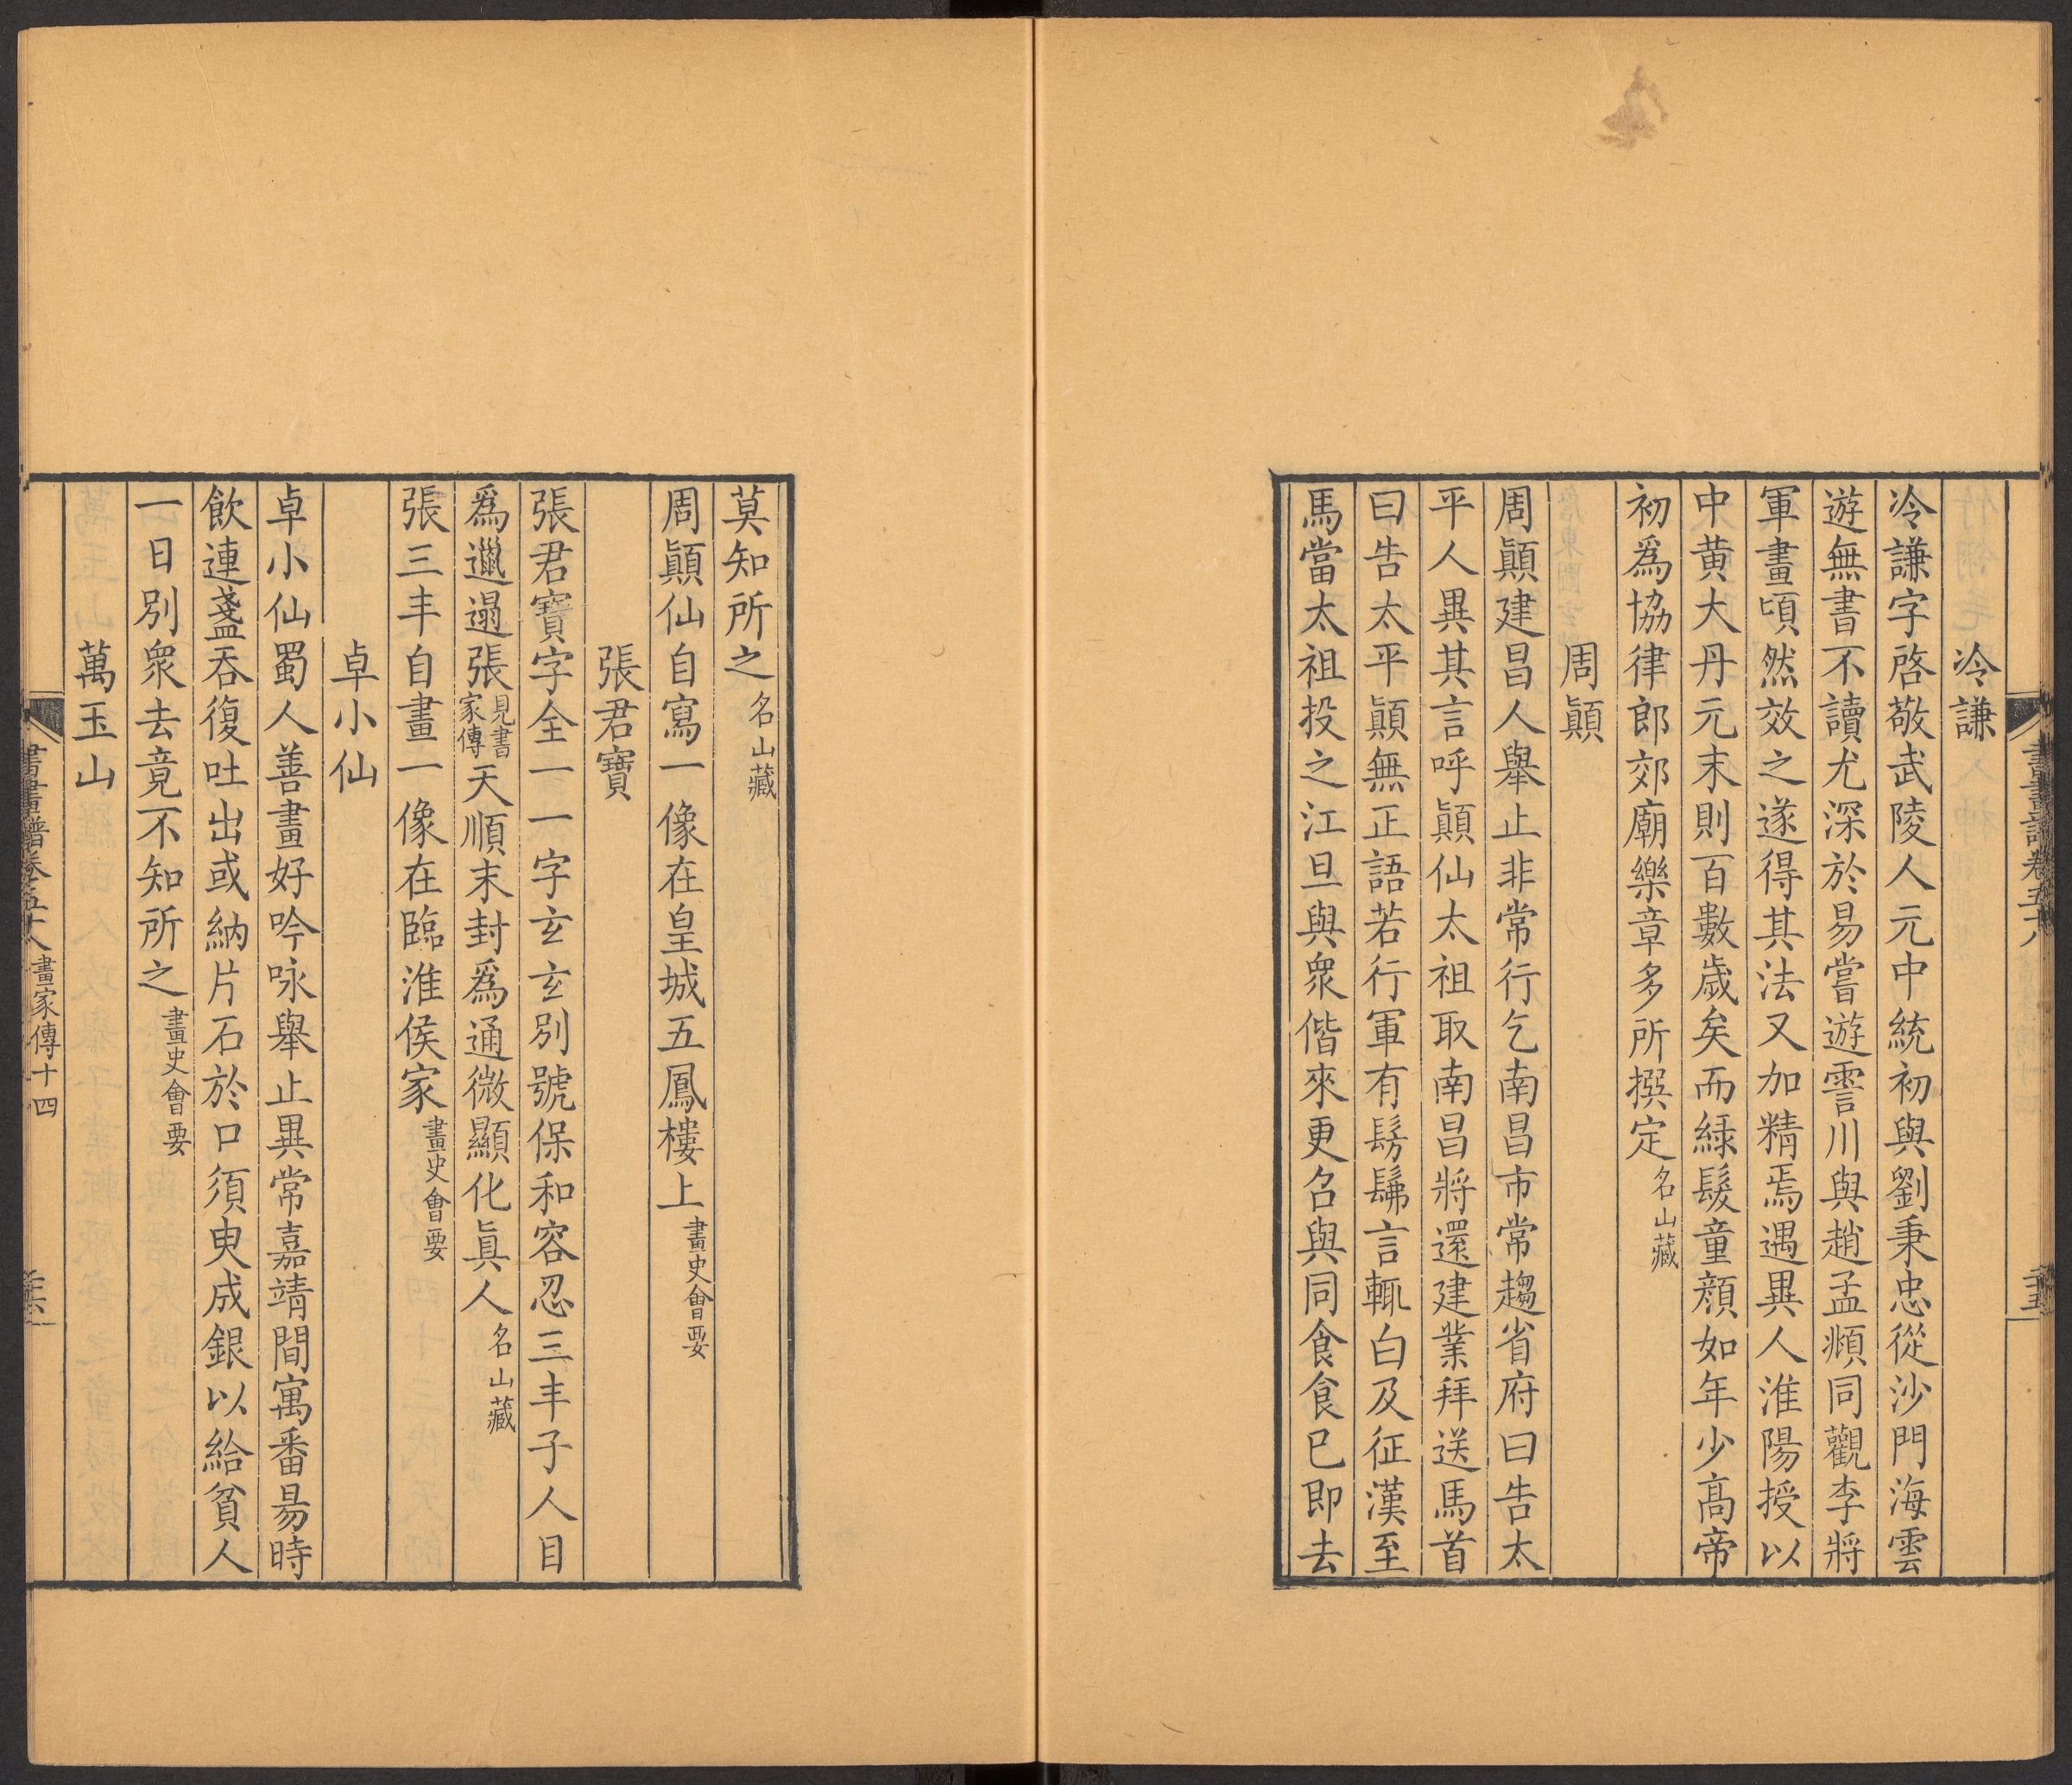 冷謙
冷謙字啓敬武陵人元中統初與劉秉忠從沙門海雲
遊無書不讀尤深於易嘗遊霅川與趙孟頫同觀李將
軍畫頃然效之遂得其法又加精焉遇異人淮陽授以
中黄大丹元末則百數歲矣而綠髮童顔如年少高帝
初爲協律郎郊廟樂章多所撰定名山藏
周顛
周顛建昌人舉止非常行乞南昌市常趨省府曰告太
平人異其言呼顛仙太祖取南昌將還建業拜送馬首
曰告太平顛無正語若行軍有髣髴言輒白及征漢至
馬當太祖投之江旦與衆偕來更召與同食食已即去
莫知所之名山藏
周顛仙自寫一像在皇城五鳳樓上畫史會要
張君寶
張君寶字全一一字玄玄別號保和容忍三丰子人目
爲邋遢張見書家傳天順末封爲通微顯化眞人名山藏
張三丰自畫一像在臨淮侯家畫史會要
卓小仙
卓小仙蜀人善畫好吟咏舉止異常嘉靖間寓番昜時
飲連盞吞復吐出或納片石於口須臾成銀以給貧人
一日別衆去竟不知所之畫史會要
萬玉山
書畫譜卷五十八 畫家傳十四